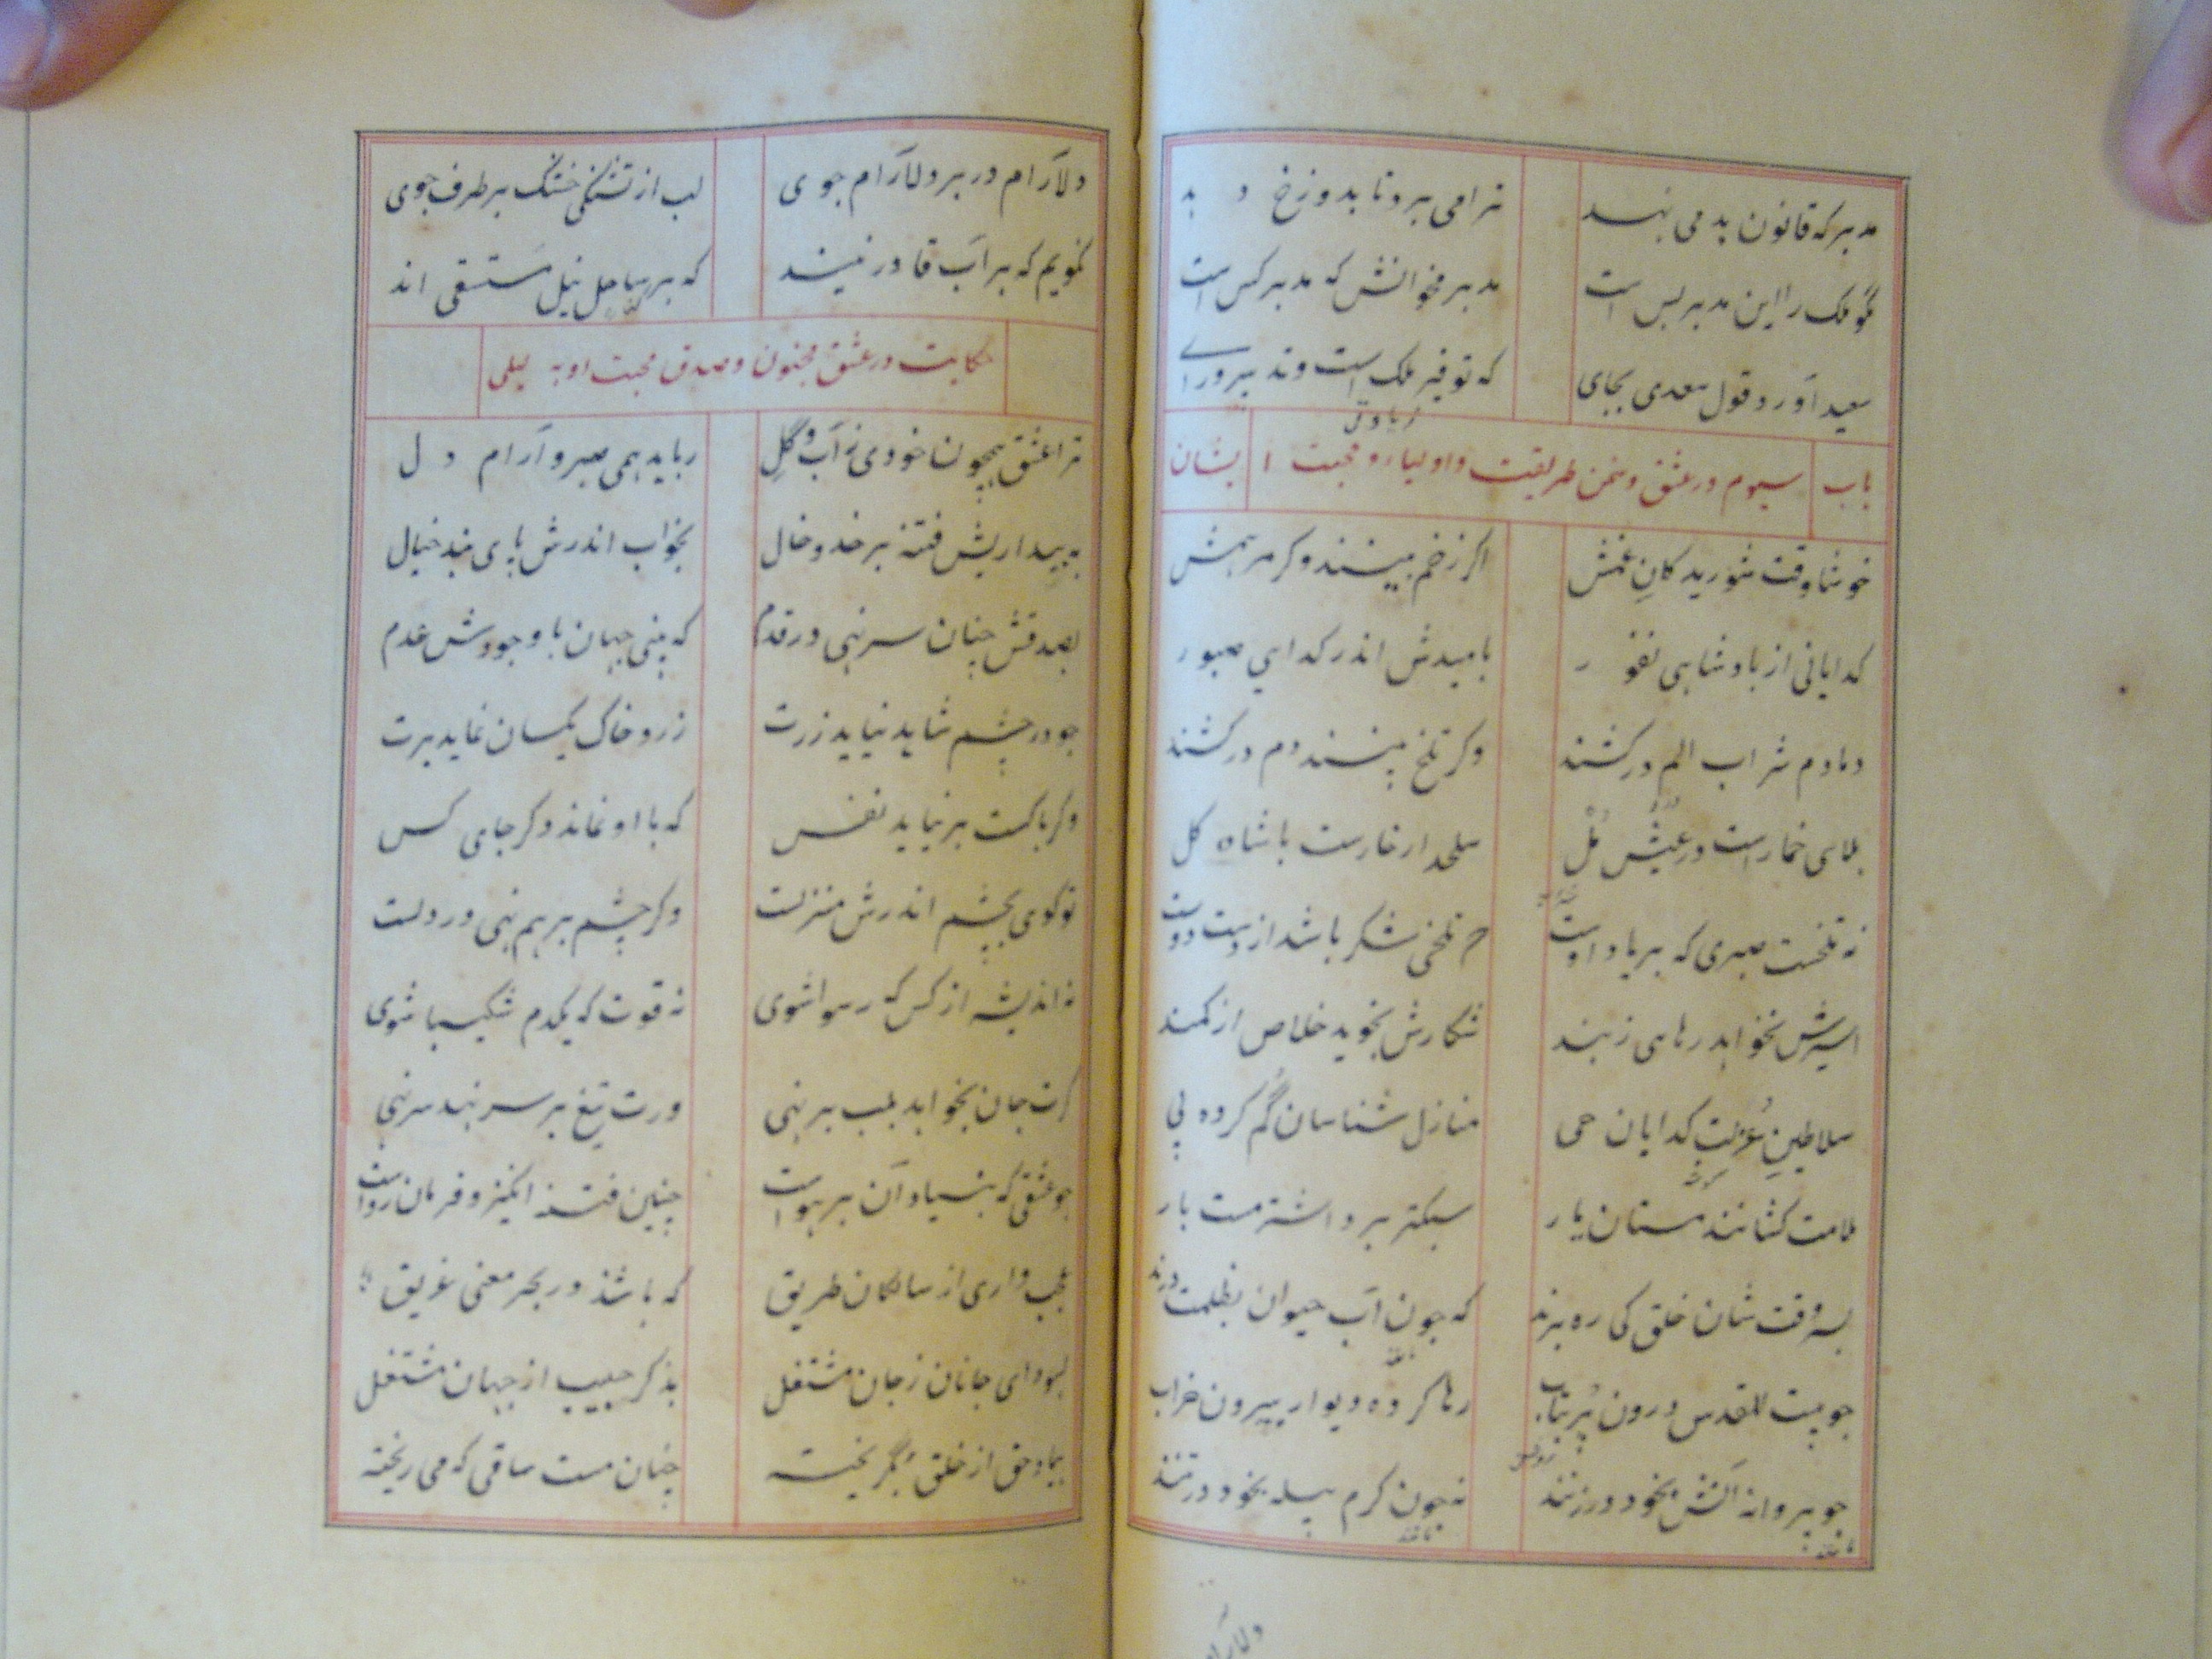 مدبر که قانون بد می نهد ترا می برد تا بدوزخ دهد
مگو ملک را این مدبر بس است مدبر مخوانش که مدبر کس است
سعید آورد قول سعدی بجای که توفیر ملک است و تدبیر و رای
باب سیوم در عشق و یمن طریقت و اولیاء و محبت ایشان
خوشا وقت شوریدگان غمش اگر زخم بینند و گر مرهمش
گدایانی از بادشاهی نفور بامیدش اندر گدایی صبور
دمادم شراب الم درکشند وگر تلخ بینند دم درکشند
بلای خمارست در عیش مل سلحدار خارست با شاه گل
نه تلخست صبری که بر یاد اوست که تلخی شکر باشد از دست دوست
اسیرش نخواهد رهایی ز بند شکارش نجوید خلاص از کمند
سلاطین عزلت گدایان حی منازل شناسان گم کرده پی
ملامت کشانند مستان یار سبکتر برد اشتر مست بار
بسر وقت شان خلق کی ره برند که چون آب حیوان بظلمت درند
چو بیت المقدس درون پرتاب رها کرده دیوار بیرون خراب
چو پروانه آتش بخود درزنند نه چون کرم پیله بخود درتنند
دلارا
دلارام در بر دلارام جوی لب از تشنگی خشک بر طرف جوی
نگویم که بر آب قادر نیند که بر ساحل نیل مستسقی اند
حکایت در عشق مجنون و صدق محبت او به لیلی
ترا عشق همچون خودی ز آب و گل رباید همی صبر و آرام دل
به بیداریش فتنه بر خد و خال بخواب اندرش پای بند خیال
بصدقش چنان سر نهی در قدم که بینی جهان با وجودش عدم
چو در چشم شاهد نیاید زرت زر و خاک یکسان نماید برت
وگر باکست بر نیاید نفس که با او نماند دگر جای کس
تو گوی بچشم اندرش منزلست وگر چشم بر هم نهی در دلست
نه اندیشه از کس که رسوا شوی نه قوت که یکدم شکیبا شوی
گرت جان بخواهد بلب بر نهی ورت تیغ بر سر نهد سر نهی
چو عشقی که بنیاد آن بر هواست چنین فتنه انگیز و فرمان رواست
عجب داری از سالکان طریق که باشند در بحر معنی غریق
بسودای جانان ز جان مشتغل بذکر حبیب از جهان مشتغل
بیاد حق از خلق بگریخته چنان مست ساقی که می ریخته